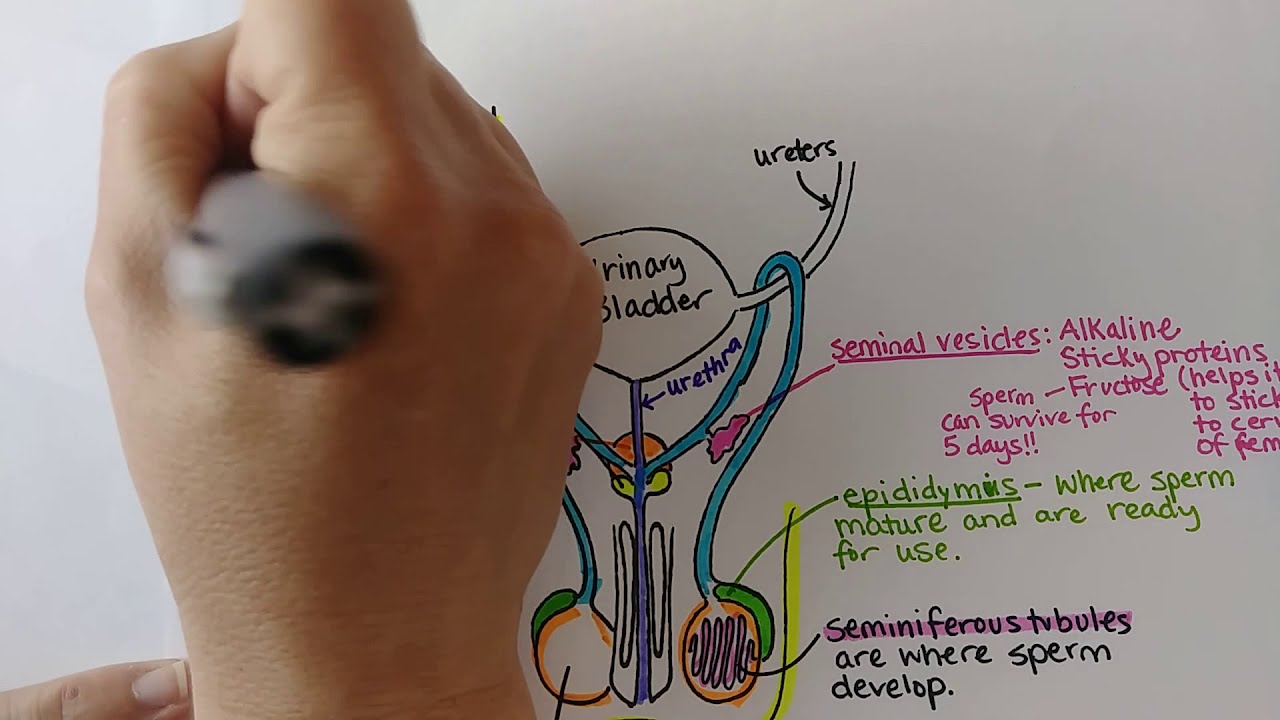 ureters
rinary
Bladder
urethra
seminal vesicles: Alkaline
Sticky proteins
Sperm – Fructose (helps it
can survive for to stick
5 days!! to cer
of fem
epididymis – where sperm
mature and are ready
for use.
Seminiferous tubules
are where sperm
develop.